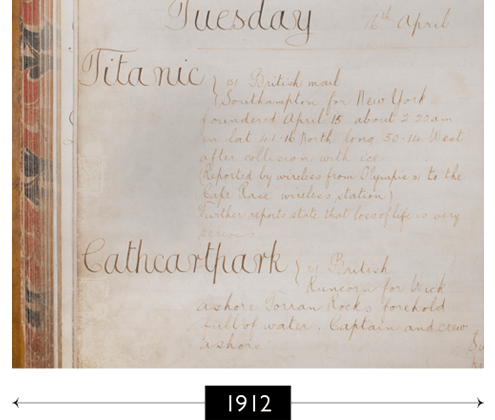 Tuesday 16th April
Titanic } ss British mail
Southampton for New York
foundered April 15 about 2 20am
in lat 41·16 North long 50·14 West
after collision with ice
(Reported by wireless from Olympic ss to the
Cape Race wireless station)
Further reports state that loss of life is very
serious
Cathcartpark } ss British
Runcorn for Wick
ashore Torran Rocks forehold
full of water. Captain and crew
ashore
1912